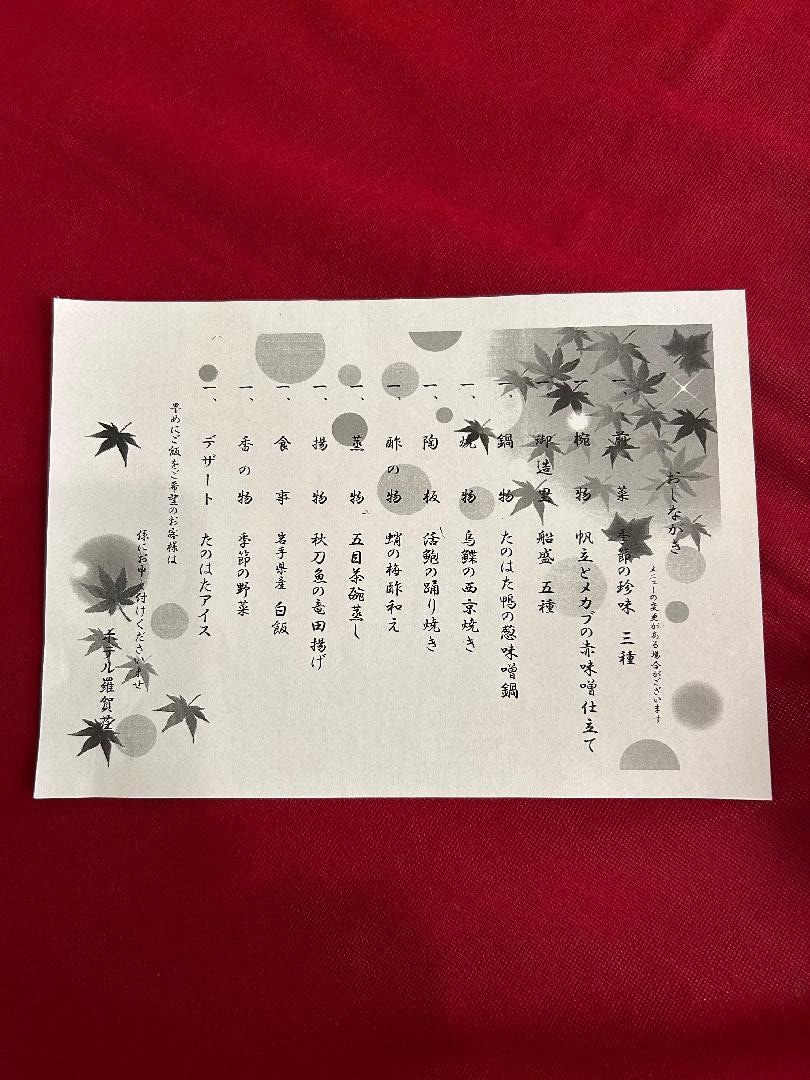 おしながき
メニューの変更がある場合がございます
一、前菜 季節の珍味 三種
一、椀物 帆立とメカブの赤味噌仕立て
一、御造里 船盛 五種
一、鍋物 たのはた鴨の葱味噌鍋
一、焼物 烏鰈の西京焼き
一、陶板 活鮑の踊り焼き
一、酢の物 蛸の梅酢和え
一、蒸物 五目茶碗蒸し
一、揚物 秋刀魚の竜田揚げ
一、食事 岩手県産 白飯
一、香の物 季節の野菜
一、デザート たのはたアイス
早めにご飯をご希望のお客様は
係にお申し付けくださいませ
ホテル羅賀荘